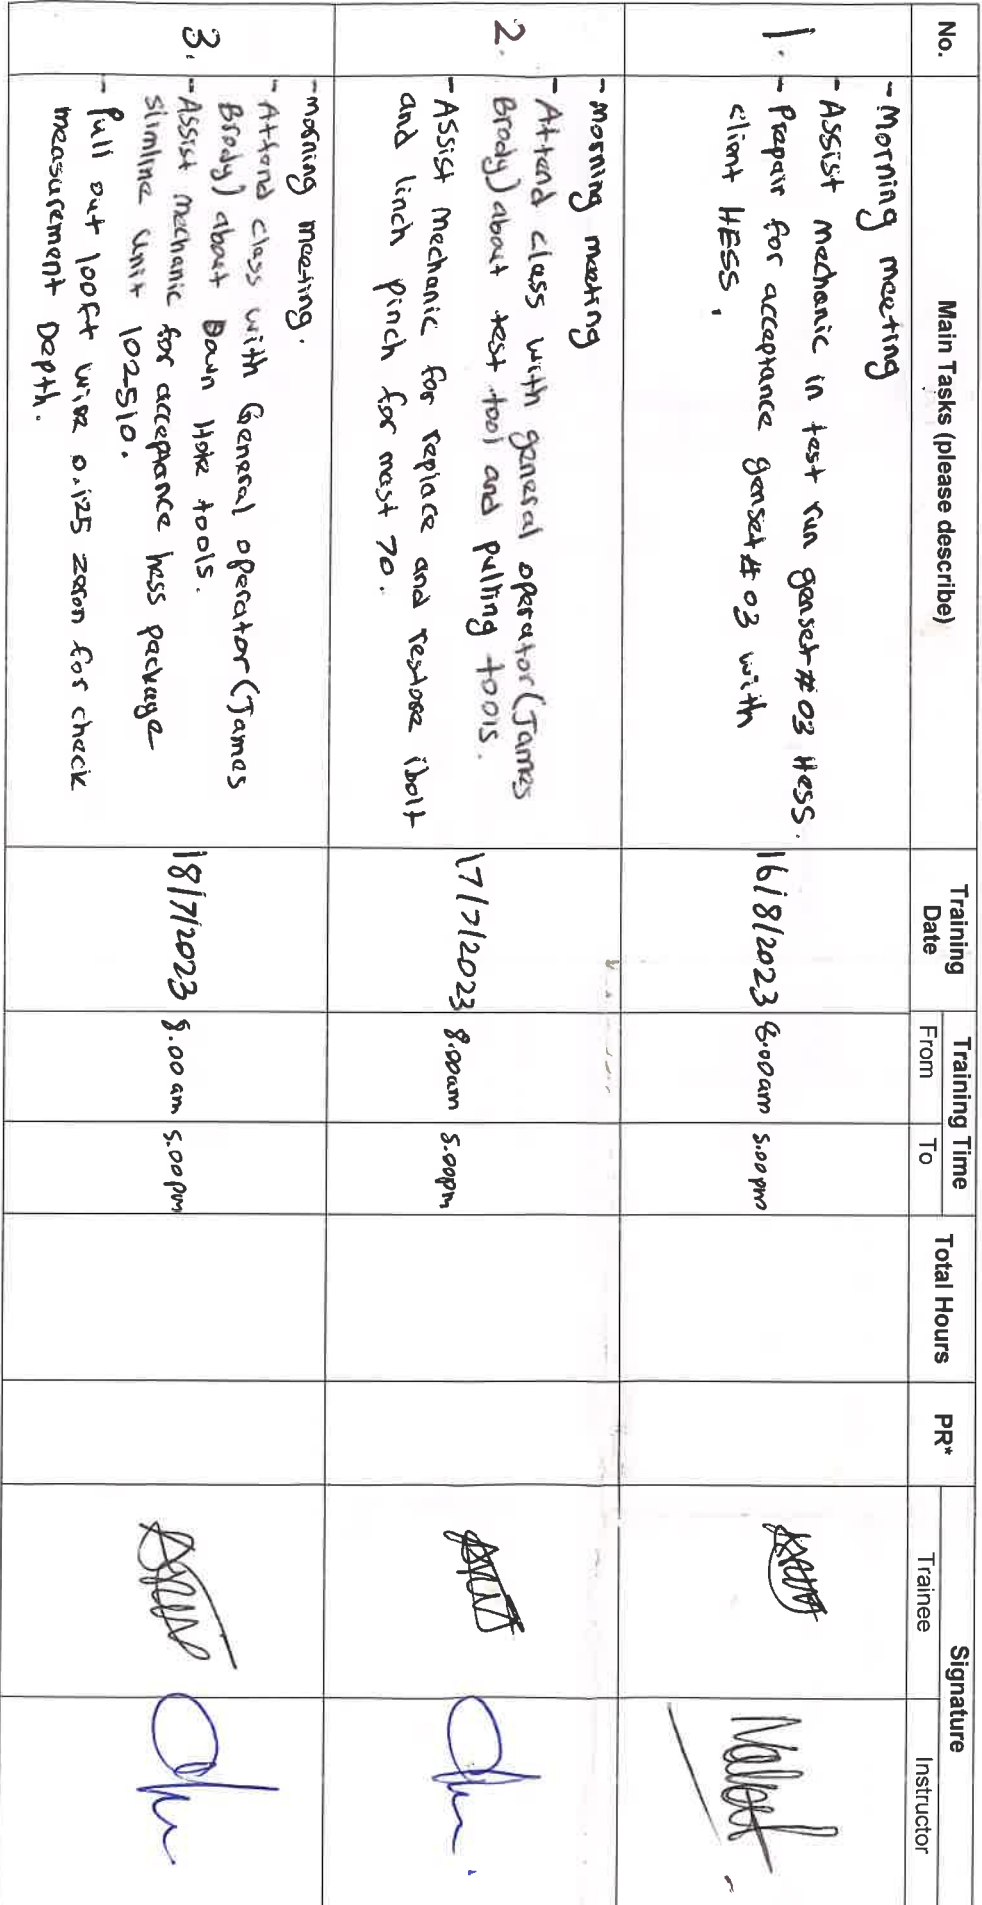 No.
Main Tasks (please describe)
Training
Date
Training Time
From
To
Total Hours
PR*
Signature
Trainee
Instructor
1.
- Morning meeting
- Assist mechanic in test run genset # 03 Hess.
- Prepair for acceptance genset # 03 with
client HESS.
16/8/2023
8.00am
5.00pm
2.
- Morning meeting
- Attend class with general operator (James
Brody) about test tool and pulling tools.
- Assist mechanic for replace and restore ibolt
and linch pinch for mast 70.
17/7/2023
8.00am
5.00pm
3.
- morning meeting.
- Attend class with General operator (James
Brody) about Down Hole tools.
- Assist mechanic for acceptance hess package
slimline unit 102510.
- Pull out 100ft wire 0.125 zeron for check
measurement Depth.
18/7/2023
8.00 am
5.00pm